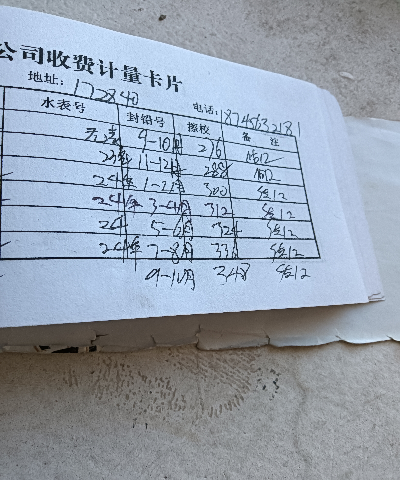 公司收费计量卡片
地址: 172840 电话: 18745632181
水表号 封铅号 擦校 备注
9-10月 276 12
23年 11-12月 288 12
24年 1-2月 300 12
24年 3-4月 312 12
24 5-6月 324 12
24年 7-8月 336 12
9-10月 348 12